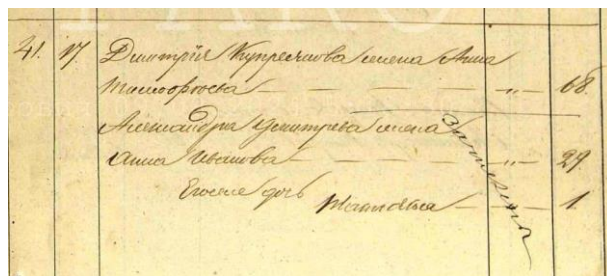 41. 17 Дмитрія Купреянова жена Анна
Тимофеева — — — „ — 68
Александра Дмитрева жена
Анна Иванова — — — „ — 29
Егоже дочь
— 1